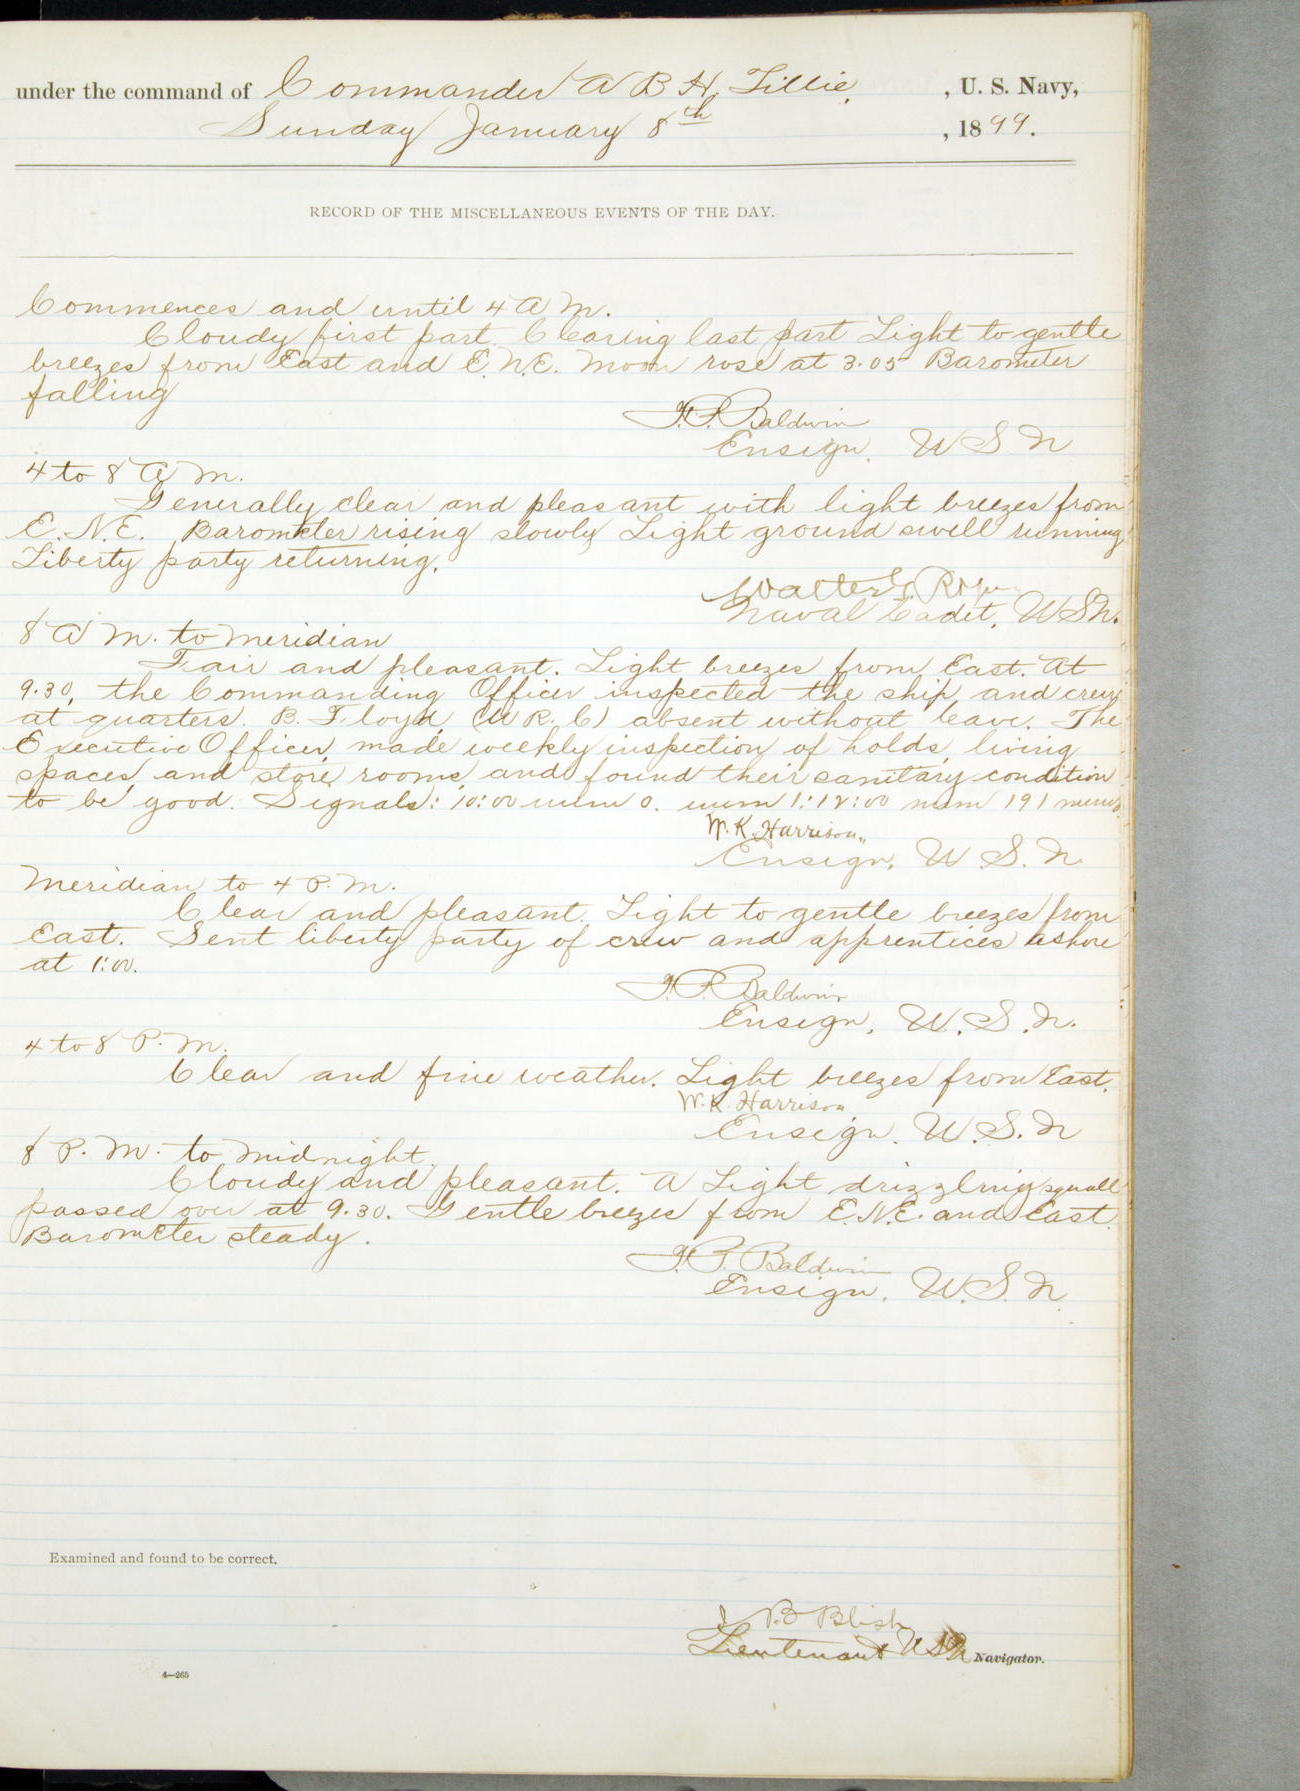 under the command of Commander A B H, Lillie, , U. S. Navy,
Sunday January 8th , 1899.
RECORD OF THE MISCELLANEOUS EVENTS OF THE DAY.
Commences and until 4 A M.
Cloudy first part. Clearing last part Light to gentle
breezes from East and E.N.E. Moon rose at 3.05 Barometer
falling
F.P. Baldwin
Ensign, U S N
4 to 8 A M.
Generally clear and pleasant with light breezes from
E.N.E. Barometer rising slowly Light ground swell running
Liberty party returning.
Walter S.
Naval Cadet, U S N.
8 A M. to Meridian
Fair and pleasant. Light breezes from East. At
9.30, the Commanding Officer inspected the ship, and crew
at quarters. B. Floyd, (W R. C) absent without leave. The
Executive Officer, made weekly inspection of holds, living
spaces, and store rooms, and found their sanitary condition
to be good. Signals: 10:00 mum 0. mum 1:12:00 mum 191 mum
W. K. Harrison,
Ensign, U. S. N.
Meridian to 4 P. M.
Clear and pleasant. Light to gentle breezes from
East. Sent liberty party of crew and apprentices ashore
at 1:00.
F. P. Baldwin
Ensign, U. S. N.
4 to 8 P. M.
Clear and fine weather. Light breezes from East.
W. K. Harrison
Ensign, U. S. N
8 P. M. to Midnight.
Cloudy and pleasant. A Light drizzling squall
passed over at 9.30. Gentle breezes from E.N.E. and East.
Barometer steady.
F. P. Baldwin
Ensign, U. S. N
Examined and found to be correct.
J B Blish
Lieutenant U S N Navigator.
4—265